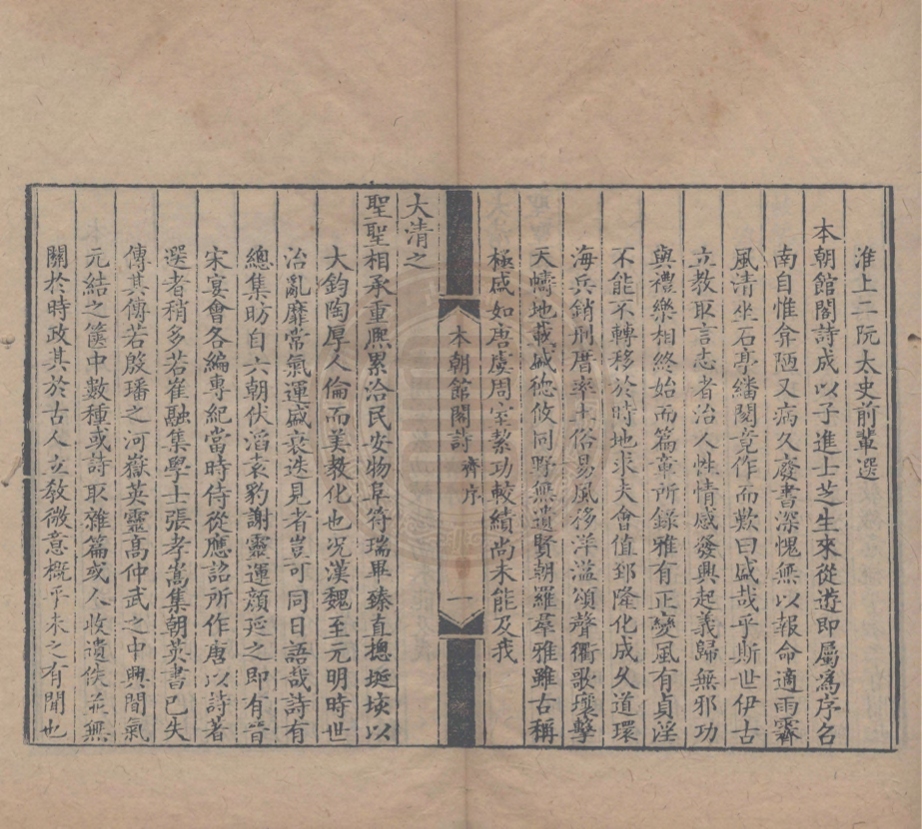 淮上二阮太史前輩選
本朝館閣詩成以子進士芝生來從遊即屬為序名
南自惟弇陋又病久廢書深愧無以報命適雨霽
風清坐石亭繙閱竟作而歎曰盛哉乎斯世伊古
立教取言志者治人性情感發興起義歸無邪功
與禮樂相終始而篇章所錄雅有正變風有貞淫
不能不轉移於時地求夫會值郅隆化成久道環
海兵銷刑厝率土俗易風移洋溢頌聲衢歌壤擊
天幬地載盛德攸同野無遺賢朝羅羣雅雖古稱
極盛如唐虞周室絜功較績尚未能及我
本朝館閣詩 齊序 一
大清之
聖聖相承重熙累洽民安物阜符瑞畢臻直摠埏垓以
大鈞陶厚人倫而美教化也况漢魏至元明時世
治亂靡常氣運盛衰迭見者豈可同日語哉詩有
總集昉自六朝伏滔袁豹謝靈運顏延之即有晉
宋宴會各編專紀當時侍從應詔所作唐以詩著
選者稍多若崔融集學士張孝嵩集朝英書已失
傳其傳若殷璠之河嶽英靈高仲武之中興間氣
元結之篋中數種或詩取雜篇或人收遺佚並無
關於時政其於古人立教微意概乎未之有聞也